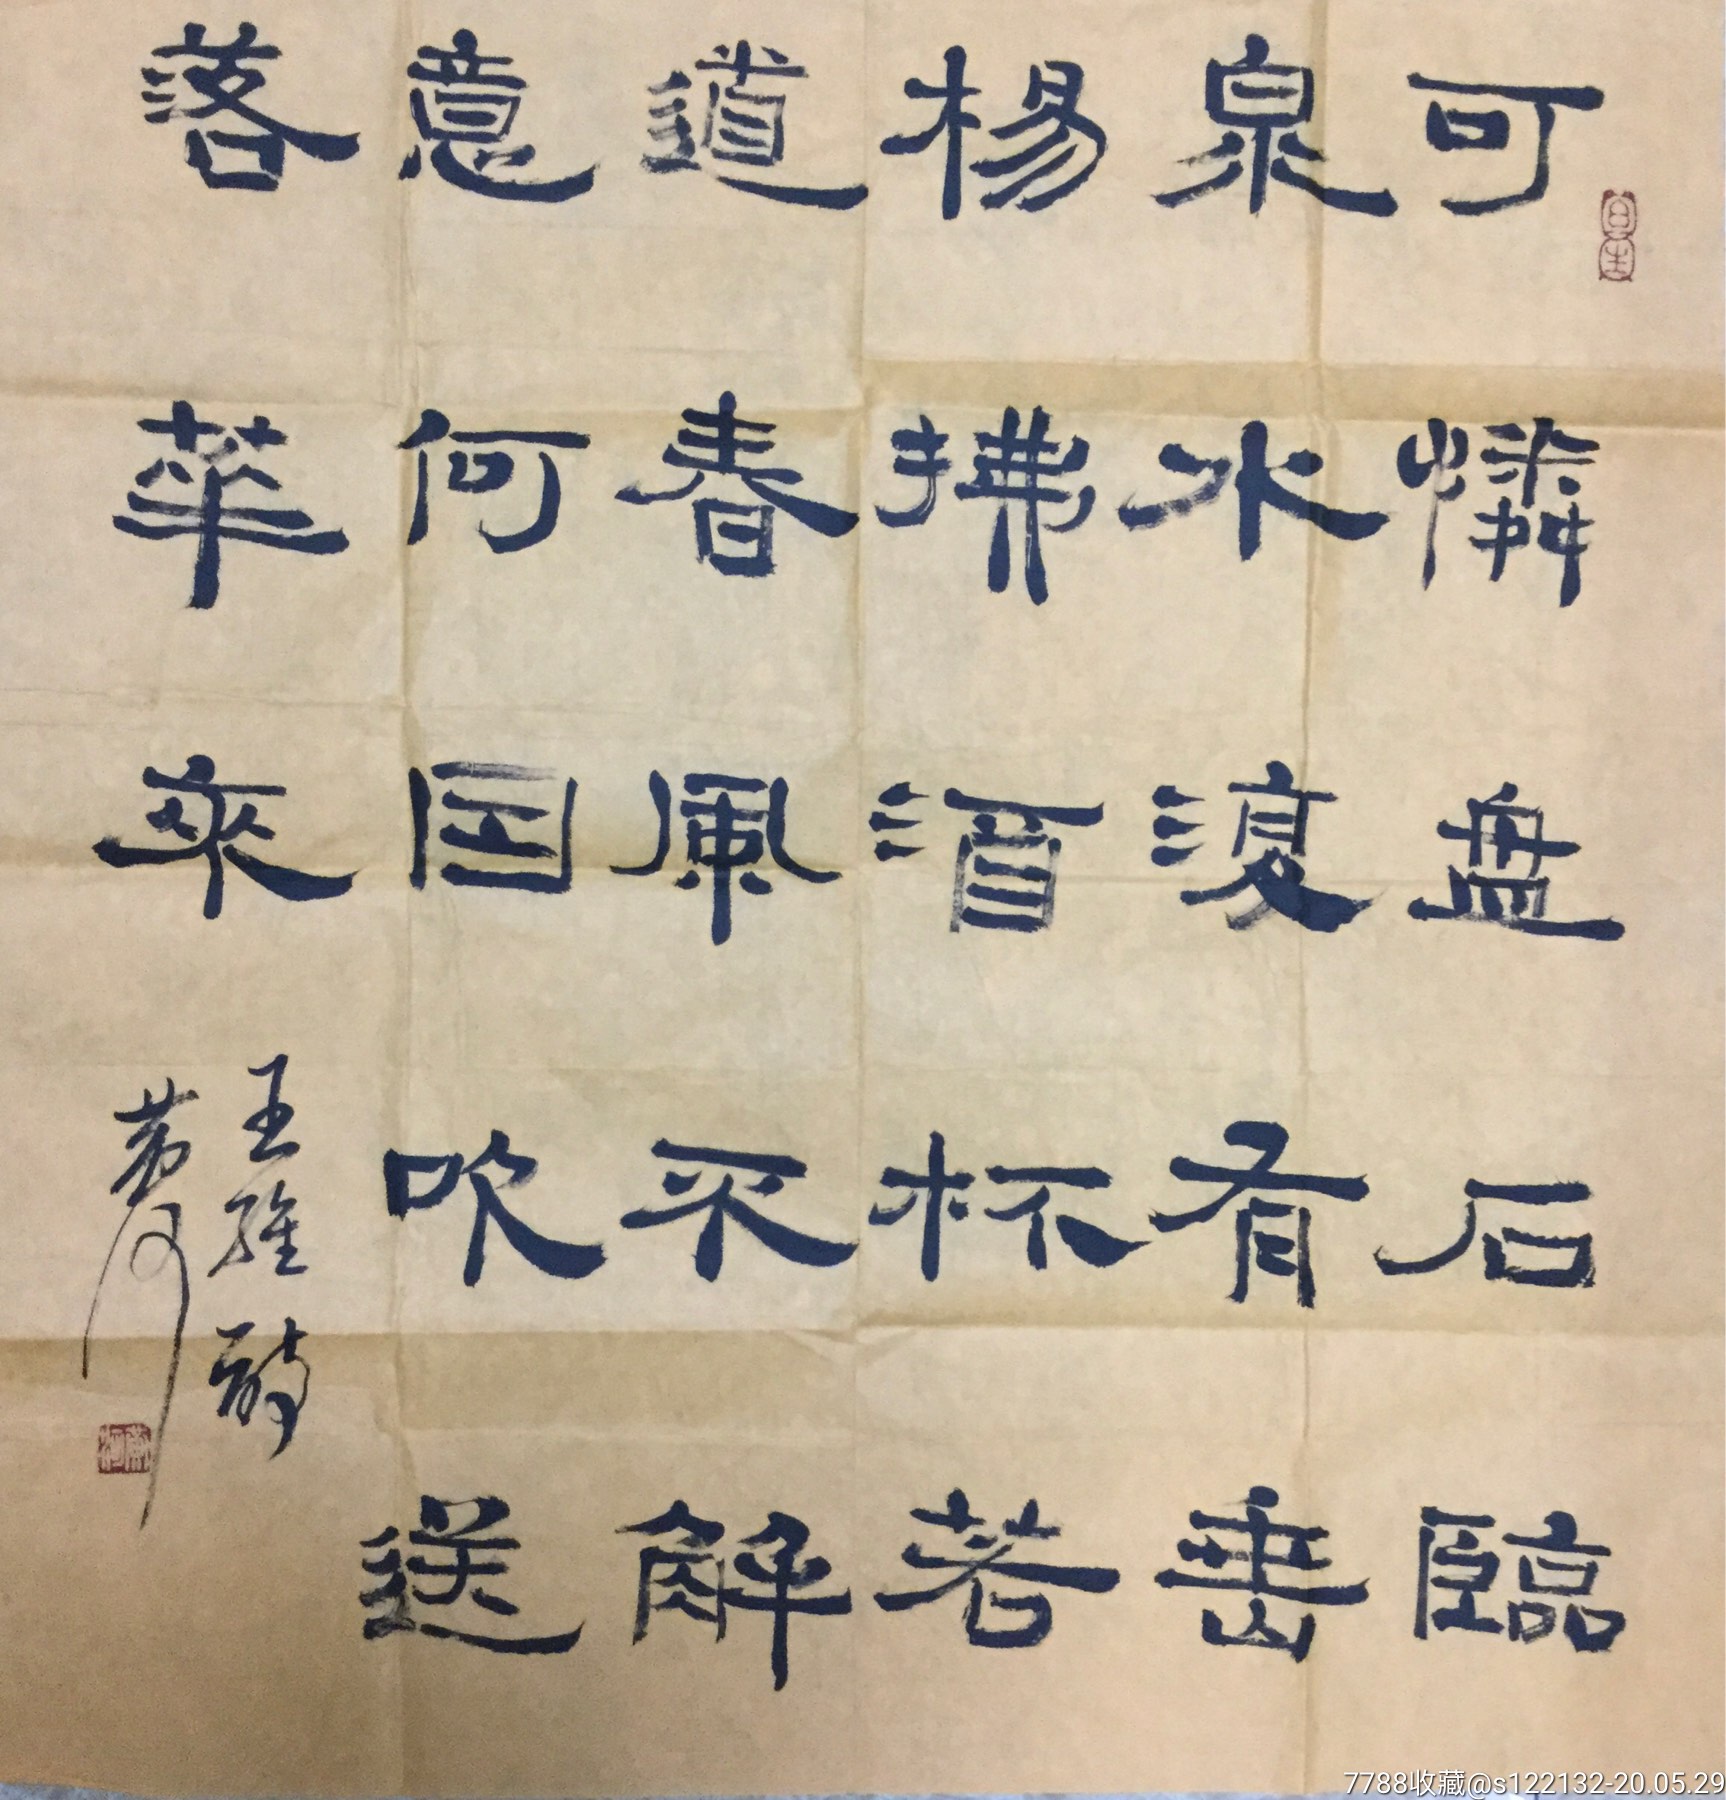 可憐盘石臨
泉水復有垂
楊拂酒杯若
道春風不解
意何因吹送
落華來
王維詩
7788收藏@s122132-20.05.29